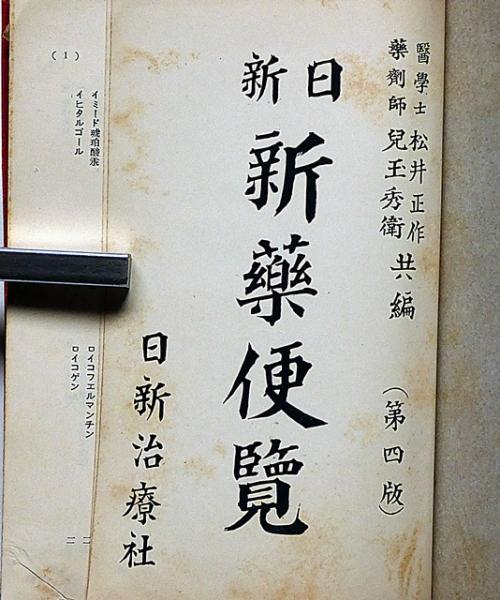 醫學士 松井正作
藥劑師 兒玉秀衛
共編
(第四版)
日新
新藥便覽
日新治療社
イミード琥珀酸汞
イヒタルゴール
(1)
ロイコフエルマンチン 二
ロイコゲン 二